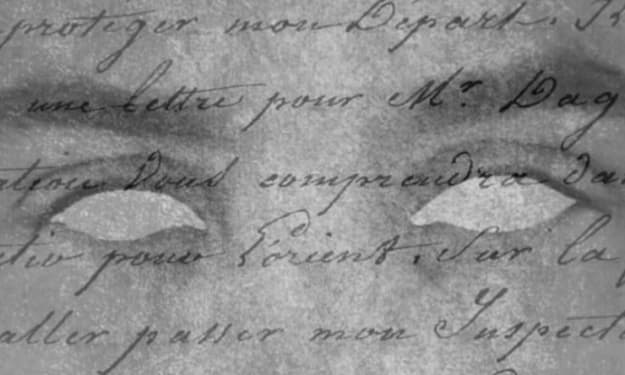 protiger mon Départ. Je
une lettre pour Mr. Dag
ation Vous comprendra da
pour l'orient. Sur la
aller passer mon Inspect